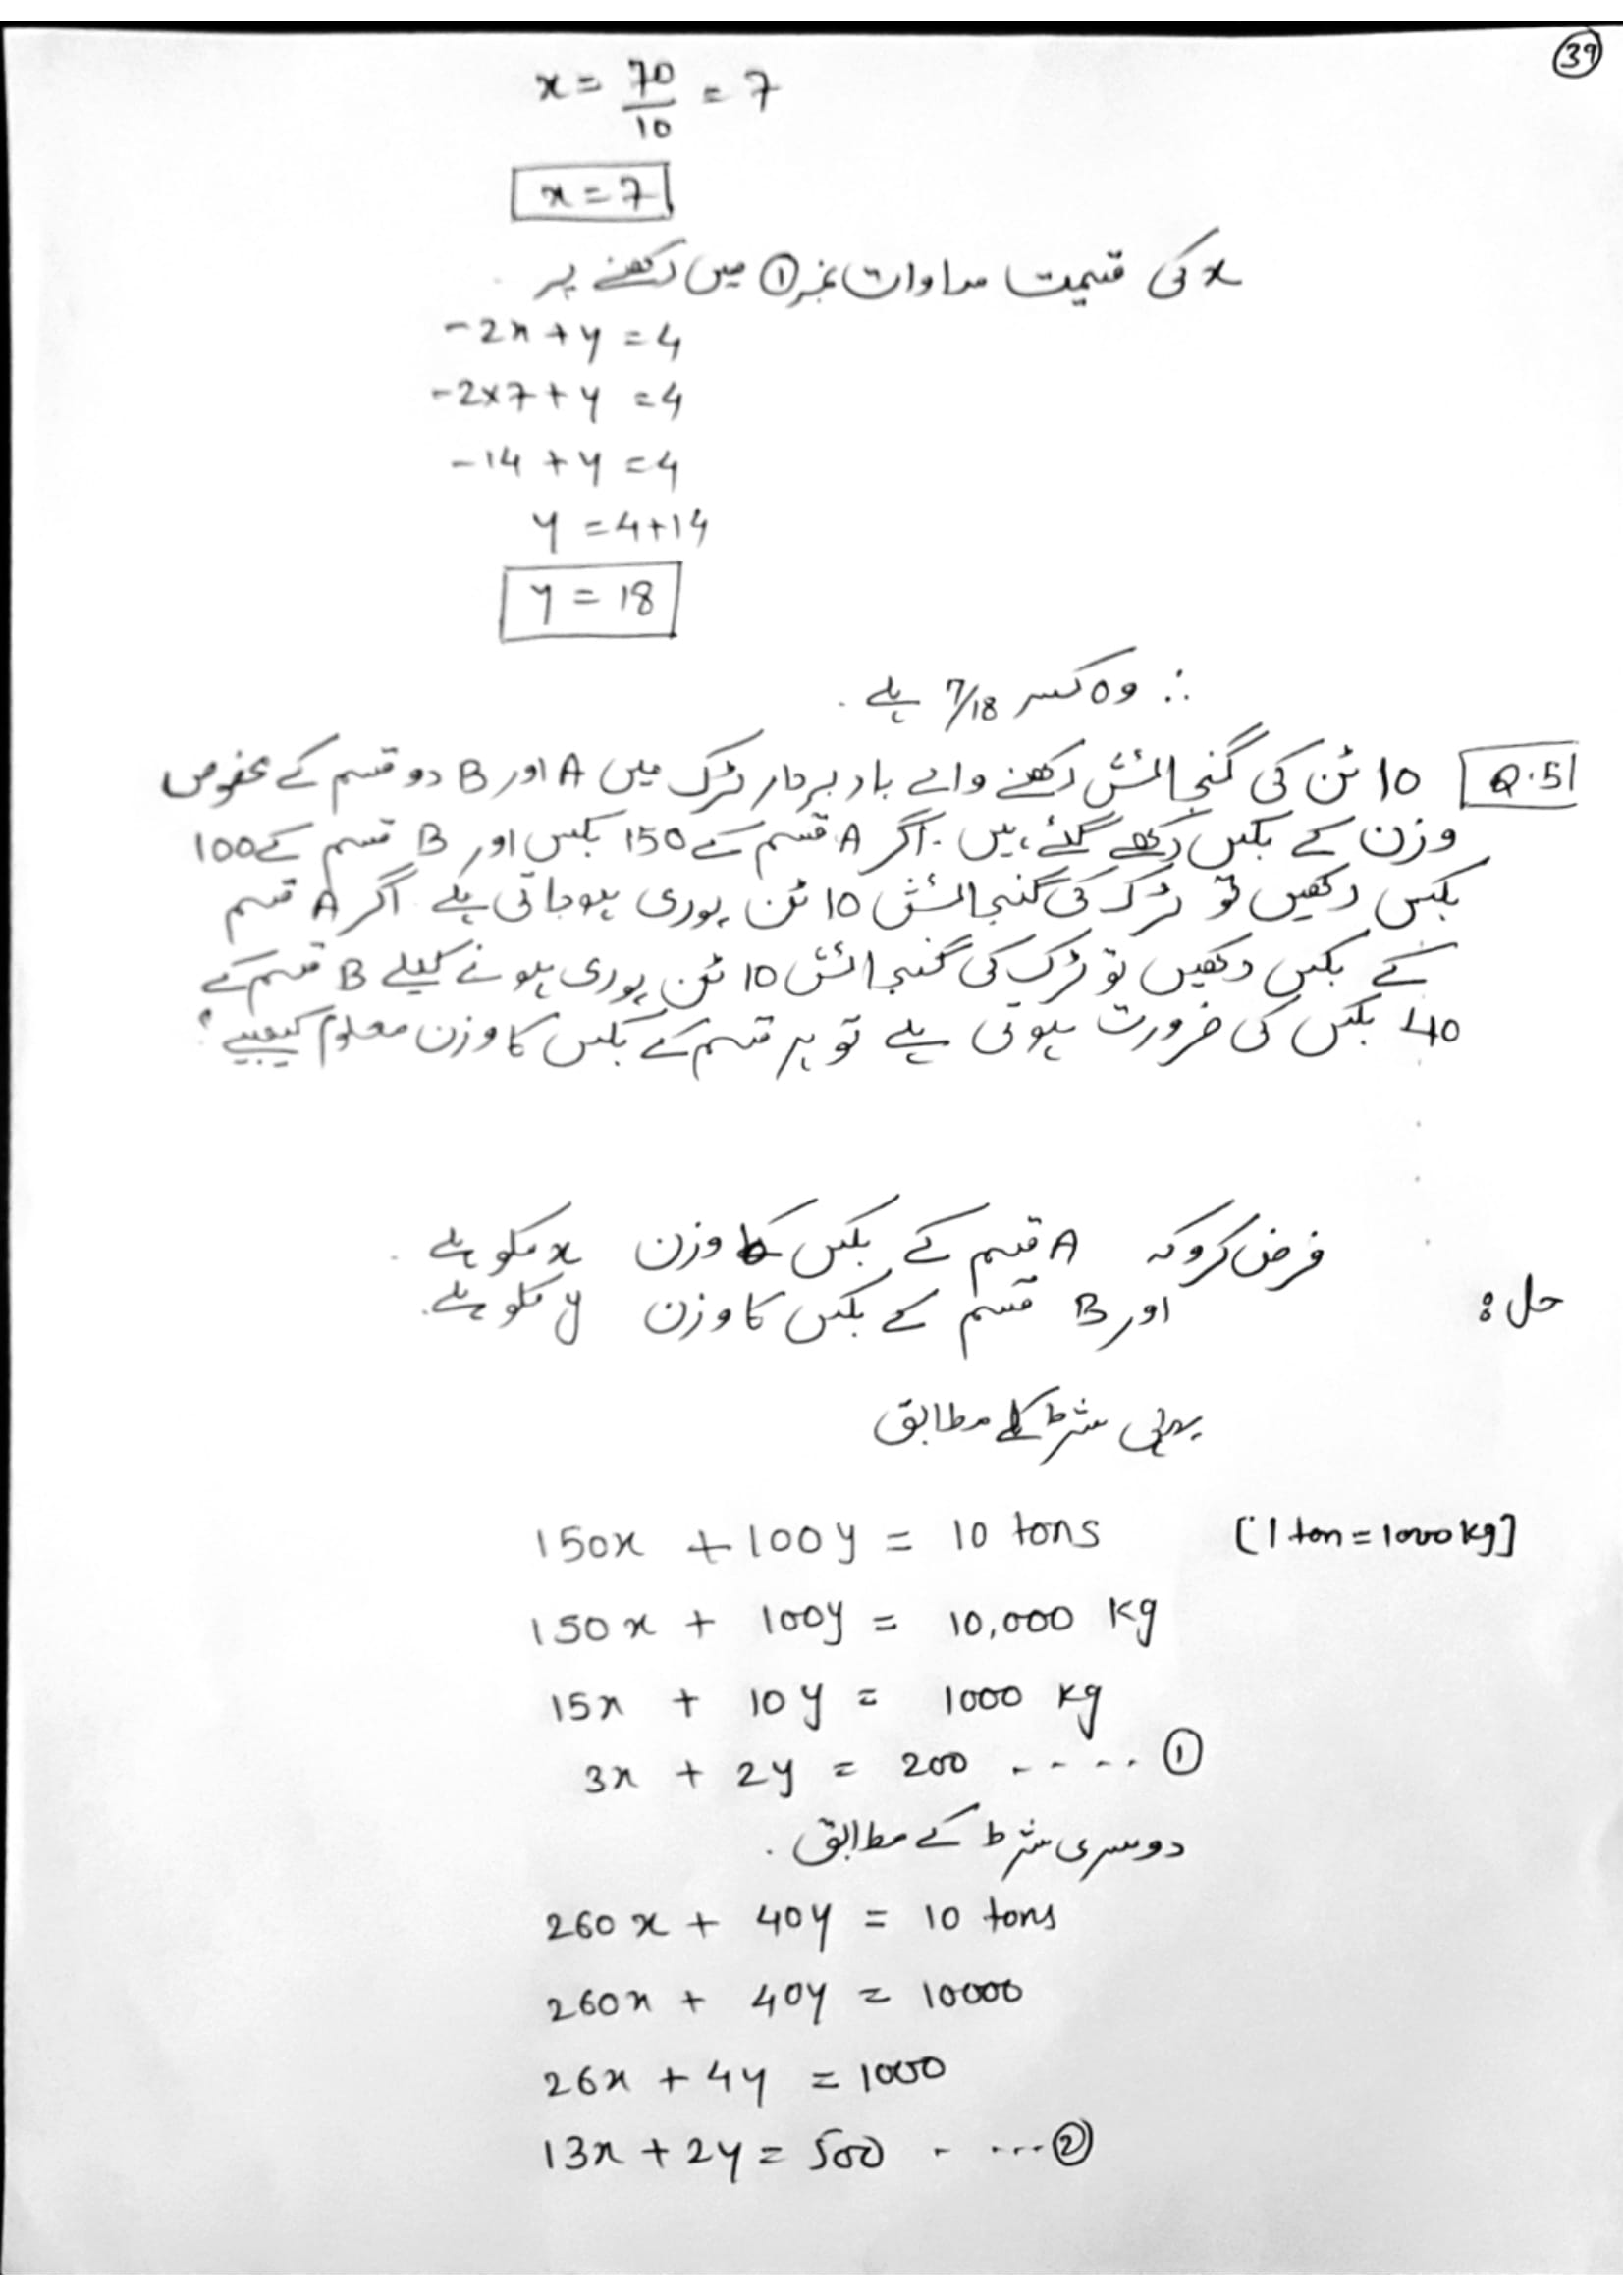 39
x = 70/10 = 7
x = 7
x کی قیمت مساوات نمبر ① میں رکھنے پر
-2x + y = 4
-2x7 + y = 4
-14 + y = 4
y = 4+14
y = 18
∴ وہ کسر 7/18 ہے.
Q.5] 10 ٹن کی گنجائش رکھنے والے باربردار ٹرک میں A اور B دو قسم کے مخصوص
وزن کے بکس رکھے گئے ہیں۔ اگر A قسم کے 150 بکس اور B قسم کے 100
بکس رکھیں تو ٹرک کی گنجائش 10 ٹن پوری ہوجاتی ہے اگر A قسم
کے بکس رکھیں تو ٹرک کی گنجائش 10 ٹن پوری ہونے کیلے B قسم کے
40 بکس کی ضرورت ہوتی ہے تو ہر قسم کے بکس کا وزن معلوم کیجیے؟
فرض کرو کہ A قسم کے بکس کا وزن x کلو ہے.
حل: اور B قسم کے بکس کا وزن y کلو ہے.
پہلی شرط کے مطابق
150x + 100y = 10 tons [1 ton = 1000 kg]
150x + 100y = 10,000 kg
15x + 10y = 1000 kg
3x + 2y = 200 ..... ①
دوسری شرط کے مطابق.
260x + 40y = 10 tons
260x + 40y = 10000
26x + 4y = 1000
13x + 2y = 500 - ...②